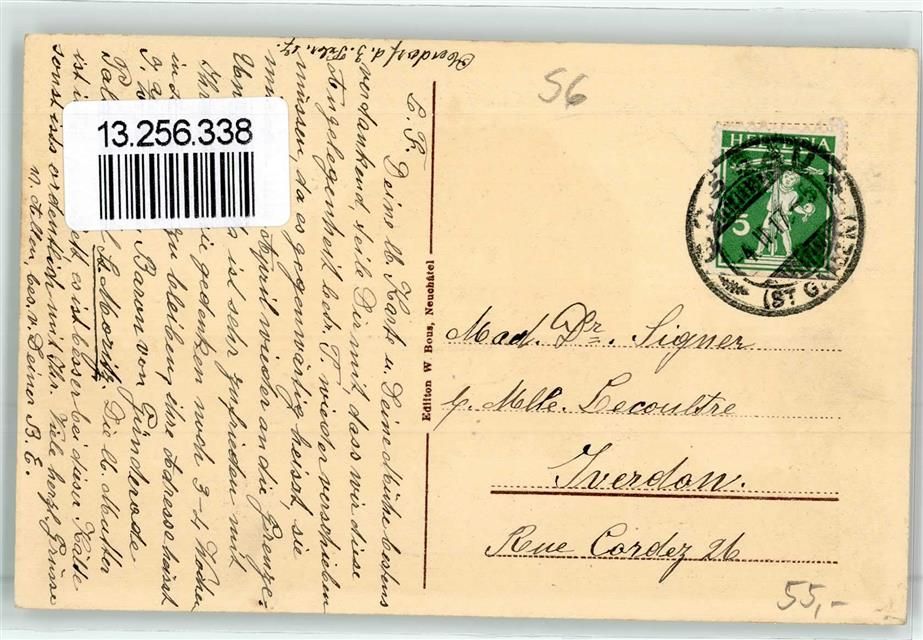 Oberdorf d. 3. Febr. 17.
L. F. Deine lb. Karte u. Deine Mühe bestens
verdankend, teile Dir mit, dass wir diese
Angelegenheit betr. T. wieder verschieben
müssen, da es gegenwärtig heisst, sie
April wieder an die Grenze.
ist sehr zufrieden mit
Ihr gedenken noch 3-4 Wochen
in zu bleiben, ihre Adresse heisst
Baron von Günderode
St. Moritz. Die lb. Mutter
ist es ist besser bei dieser Kälte
sonst ist's ordentlich mit Ihr. Viele herzl. Grüsse
v. Allen, bes. v. Deiner B. E.
13.256.338
Edition W Bous, Neuchâtel
56
HELVETIA
5
(ST GALLEN)
Mad. Dr. Signer
p. Mlle. Lecoultre
Yverdon.
Rue Cordez 26
55,-